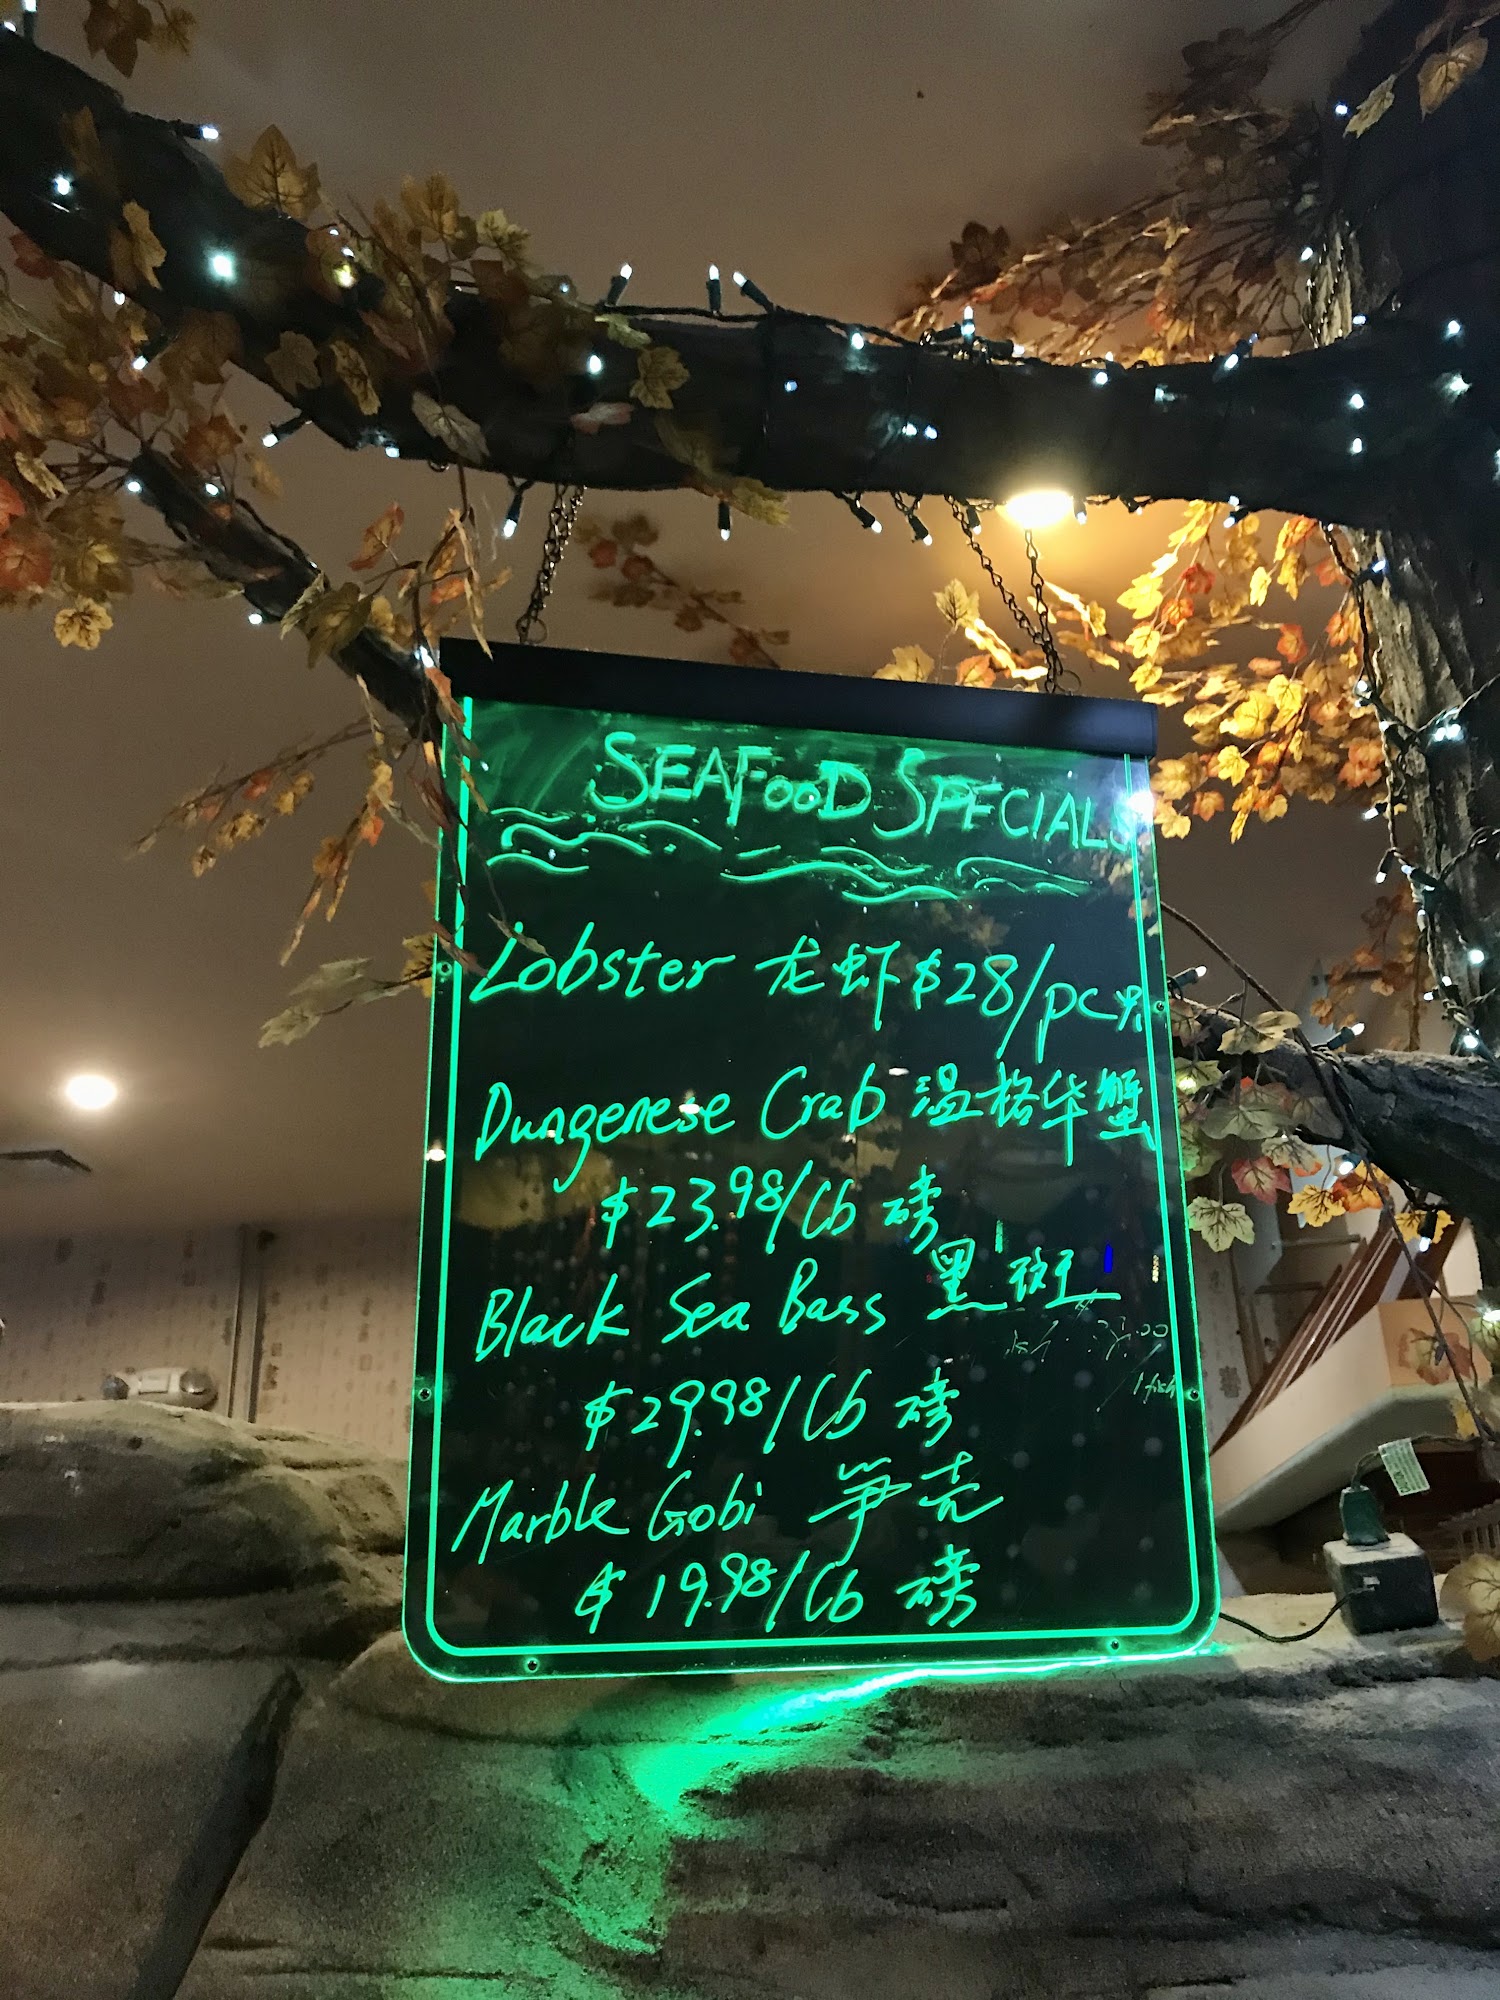 SEAFOOD SPECIALS
Lobster 龙虾 $28/pc 只
Dungenese Crab 温格华蟹
$23.98/Lb 磅
Black Sea Bass 黑斑
$29.98/Lb 磅
1 fish
Marble Gobi 笋壳
$19.98/Lb 磅